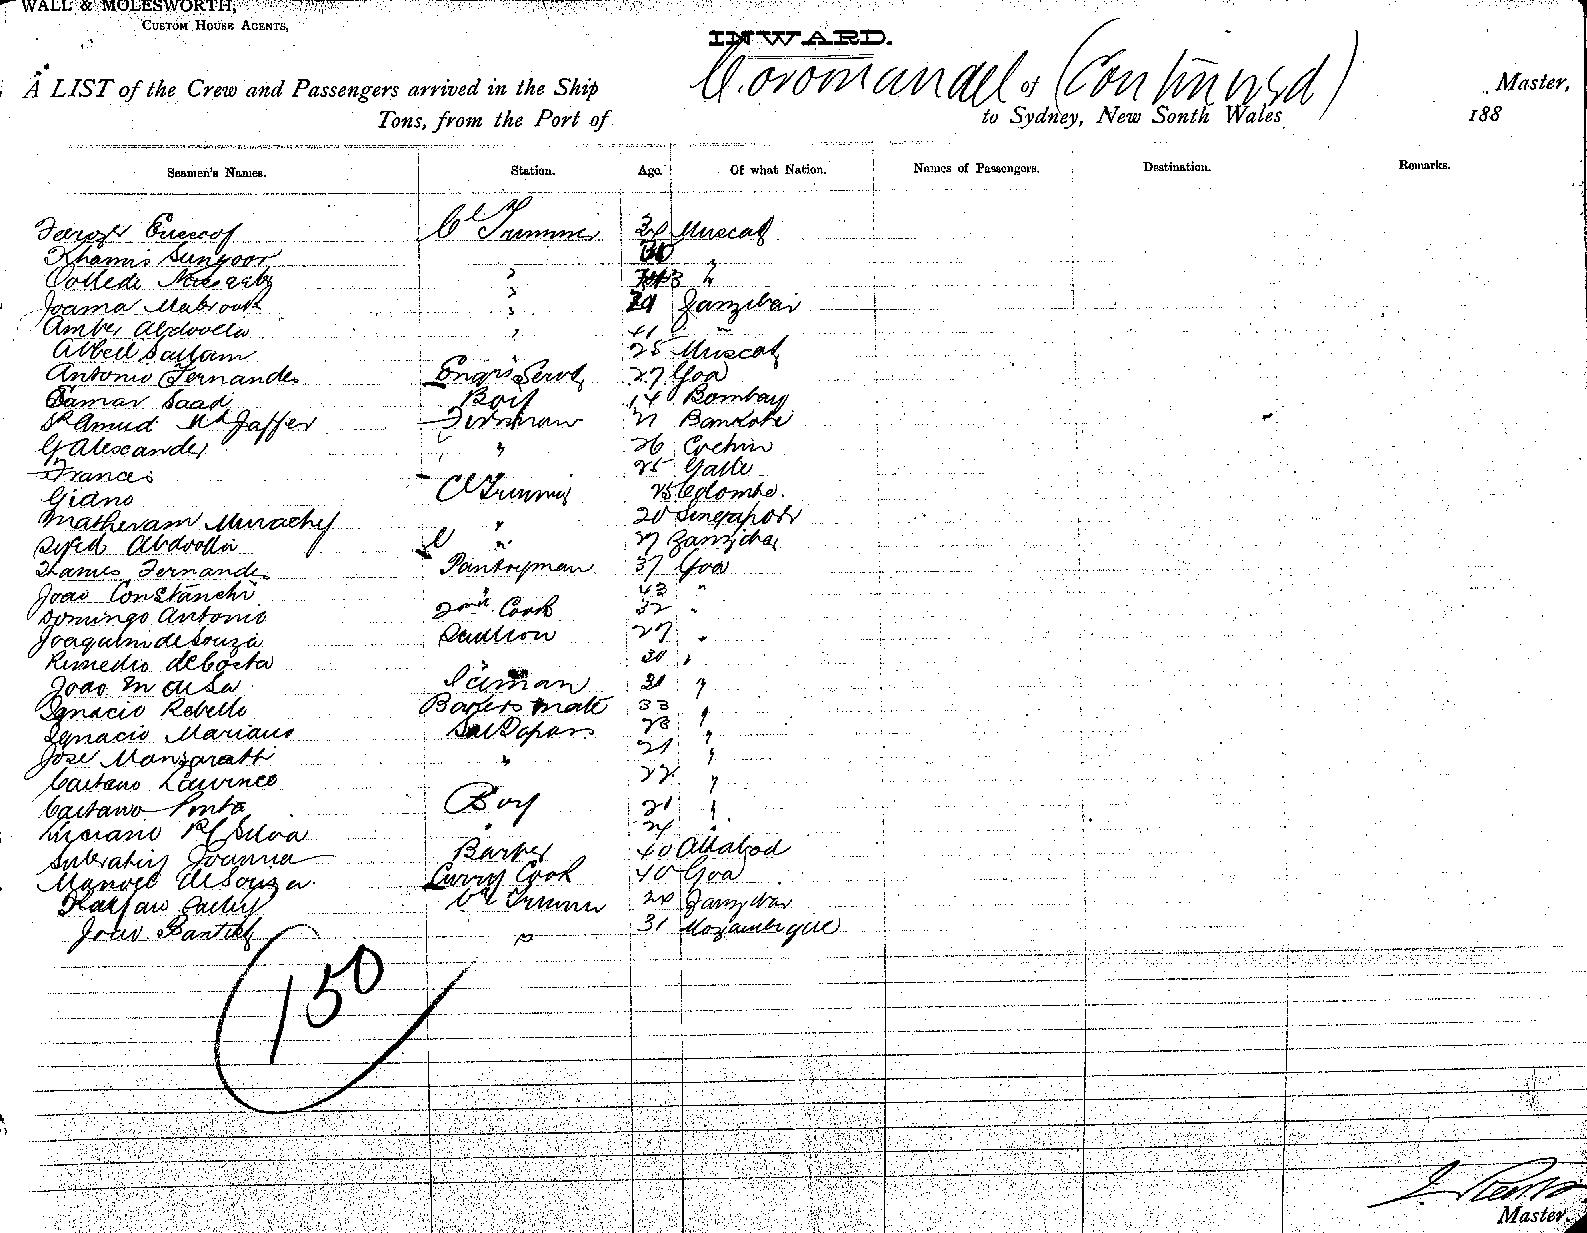 WALL & MOLESWORTH,
CUSTOM HOUSE AGENTS,
INWARD.
A LIST of the Crew and Passengers arrived in the Ship Coromandel of (Continued) Master,
Tons, from the Port of to Sydney, New South Wales 188
Seamen's Names. Station. Age. Of what Nation. Names of Passengers. Destination. Remarks.
Cl Trimmer 24 Muscat
Khamis Sungoor 30 "
"
Joama Mabrook " Zanzibar
Amber Abdoolla " "
Abbed Sallam 25 Muscat
Antonio Fernandes Engrs Servt 27 Goa
Saad Boy 14 Bombay
Jaffer Fireman 21 Bankote
G Alexander " 26 Cochin
Francis 25 Galle
Giano Cl Trimmer 25 Colombo.
Matheram " 20 Singapore
Syed Abdoolla " 27 Zanzibar
Fernandes Pantryman 37 Goa
Joao Constanchi " 43 "
Domingo Antonio 2nd Cook 32 "
Joaquim de Souza Scullion 27 "
Remedio deCosta 30 "
Joao M deSa 31 "
Ignacio Rebello Bakers Mate 33 "
Ignacio Mariano 23 "
Jose " 21 "
Caetano Lawrence 22 "
Caetano Pinto Boy 21 "
Luciano R C Silva " 24 "
Joanna Barber 40
Manoel DeSouza. Curry Cook 40 Goa
Cl Trimmer 24 Zanzibar
Joao " 31 Mozambique
150
Master.